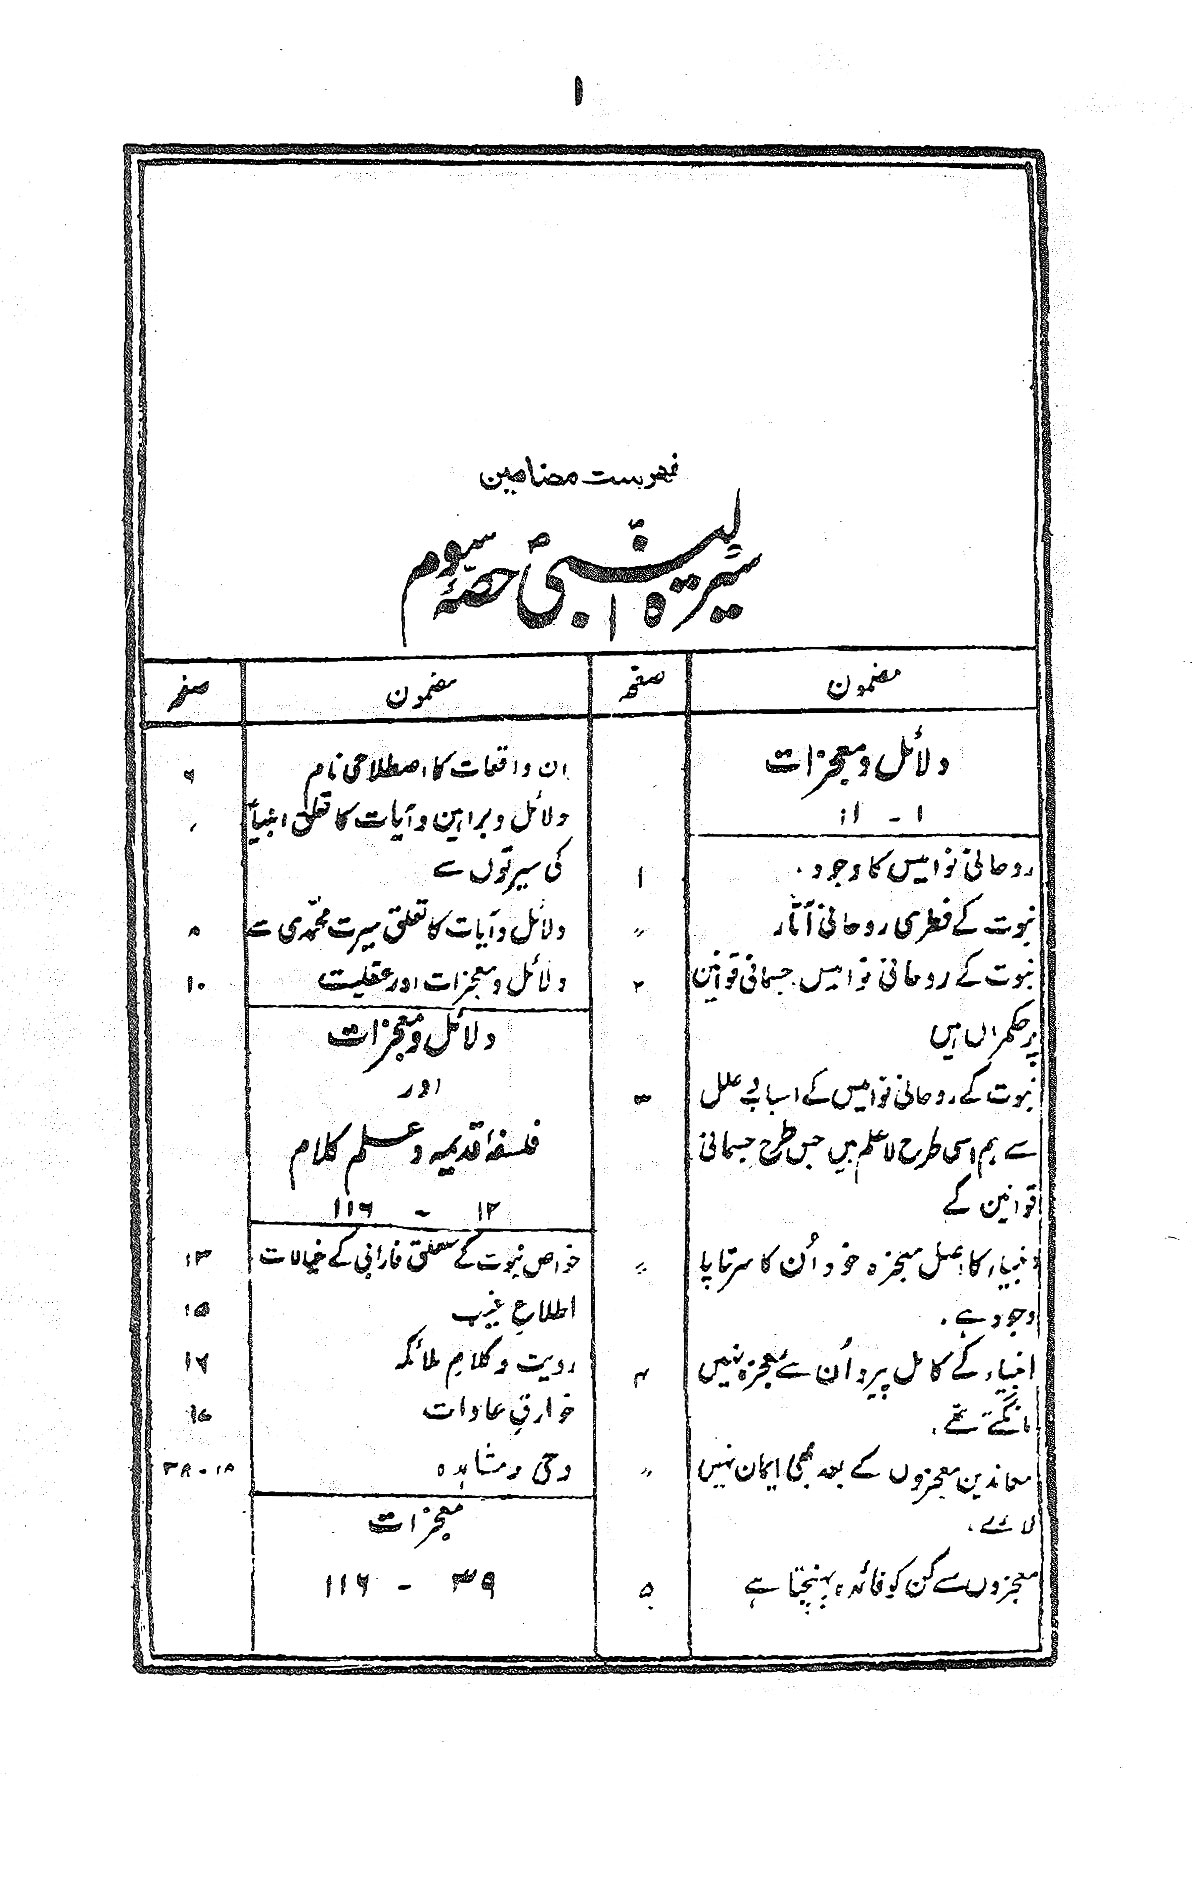 ۱
فہرست مضامین
سیرۃ النبیؐ حصہ سوم
مضمون صفحہ
دلائل و معجزات
۱ - ۱۱
روحانی نوامیس کا وجود۔ ۱
نبوت کے فطری روحانی آثار ״
نبوت کے روحانی نوامیس جسمانی قوانین ۲
پر حکمراں ہیں
نبوت کے روحانی نوامیس کے اسباب علل ۳
سے ہم اسی طرح لاعلم ہیں جس طرح جسمانی
قوانین کے
انبیاء کا اصل معجزہ خود اُن کا سرتاپا ״
وجود ہے۔
انبیاء کے کامل پیرو اُن سے معجزہ نہیں ۴
مانگتے تھے۔
معاندین معجزوں کے بعد بھی ایمان نہیں ״
لاتے۔
معجزوں سے کن کو فائدہ پہنچتا ہے ۵
مضمون صفحہ
ان واقعات کا اصطلاحی نام ۶
دلائل و براہین و آیات کا تعلق انبیاؑ
کی سیرتوں سے
دلائل و آیات کا تعلق سیرت محمدی سے ۸
دلائل و معجزات اور عقلیت ۱۰
دلائل و معجزات
اور
فلسفۂ قدیمہ و علم کلام
۱۲ - ۱۱۶
خواص نبوت کے متعلق فارابی کے خیالات ۱۳
اطلاعِ غیب ۱۵
رویت و کلامِ ملائکہ ۱۶
خوارقِ عادات ۱۷
وحی و مشاہدہ ۱۸-۳۸
معجزات
۳۹ - ۱۱۶